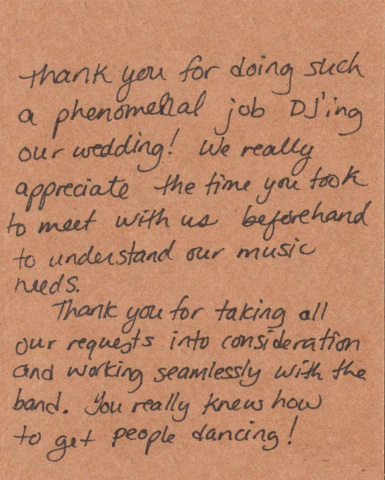 Thank you for doing such
a phenomenal job DJ'ing
our wedding! We really
appreciate the time you took
to meet with us beforehand
to understand our music
needs.
Thank you for taking all
our requests into consideration
and working seamlessly with the
band. You really knew how
to get people dancing!